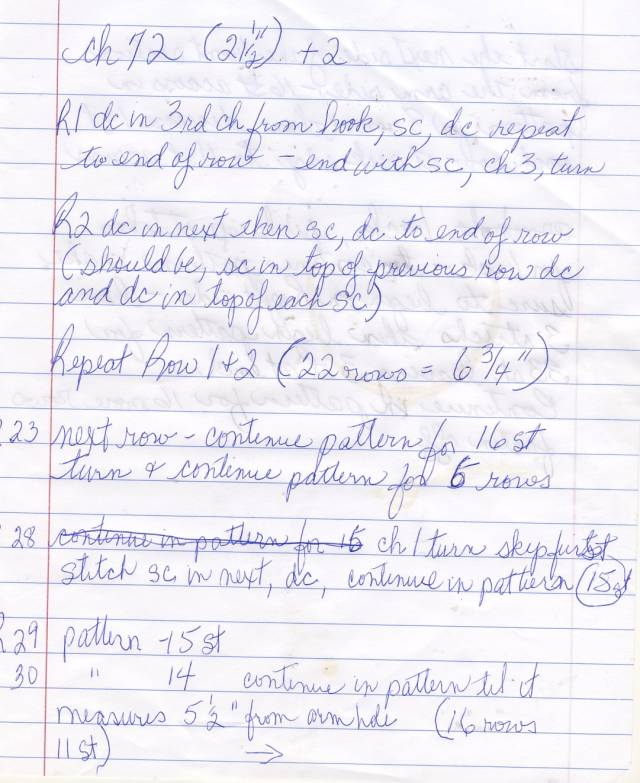 ch 72 (21 1/2") + 2
R1 dc in 3rd ch from hook, sc, dc repeat
to end of row - end with sc, ch 3, turn
R2 dc in next then sc, dc to end of row
(should be, sc in top of previous row dc
and dc in top of each sc)
Repeat Row 1 + 2 (22 rows = 6 3/4")
23 next row - continue pattern for 16 st
turn & continue pattern for 5 rows
28 continue in pattern for 15 ch 1 turn skip first
stitch sc in next, dc, continue in pattern (15 st
R 29 pattern - 15 st
30 " 14 continue in pattern til it
measures 5 1/2" from armhole (16 rows
11 st) →